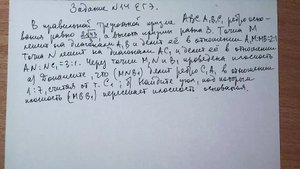 Задание N14 ЕГЭ.
В правильной треугольной призме ABCA₁B₁C₁ ребро осно-
вания равно а высота призмы равна 3. Точка M
лежит на диагонали A₁B и делит её в отношении A₁M:MB=2:1
Точка N лежит на диагонали AC₁ и делит её в отношении
AN:NC₁=3:1. Через точки M, N и B₁ проведена плоскость
а) Докажите, что (MNB₁) делит ребро C₁A₁ в отношении
1:7, считая от т. C₁; б) Найдите угол, под которым
плоскость (MBB₁) пересекает плоскость основания.